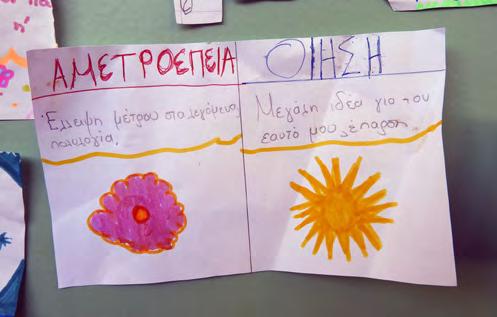 ΑΜΕΤΡΟΕΠΕΙΑ
Έλλειψη μέτρου στα λεγόμενα,
πολυλογία.
ΟΙΗΣΗ
Μεγάλη ιδέα για τον
εαυτό μου, έπαρση.